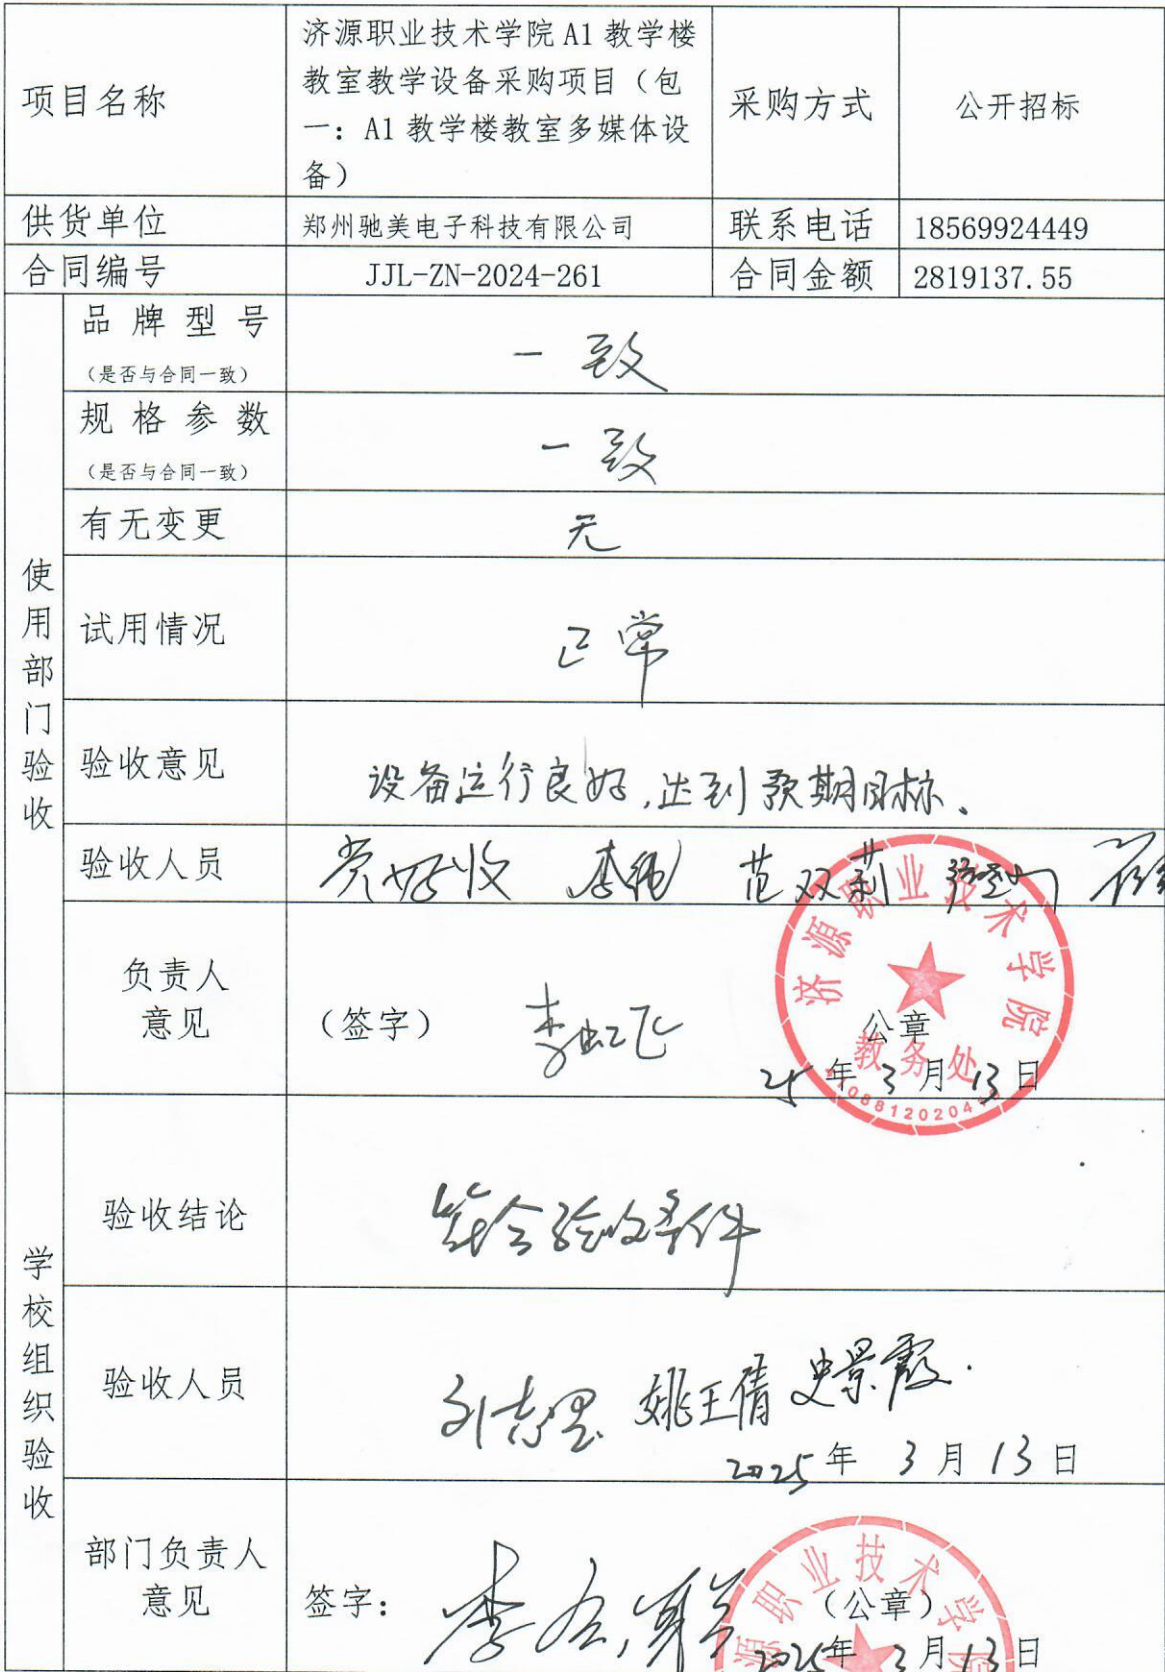 项目名称
济源职业技术学院 A1 教学楼
教室教学设备采购项目（包
一：A1 教学楼教室多媒体设
备）
采购方式
公开招标
供货单位
郑州驰美电子科技有限公司
联系电话
18569924449
合同编号
JJL-ZN-2024-261
合同金额
2819137.55
使用部门验收
品牌型号
（是否与合同一致）
一致
规格参数
（是否与合同一致）
一致
有无变更
无
试用情况
正常
验收意见
设备运行良好，达到预期目标。
验收人员
范双莉
负责人
意见
（签字）
李虹飞
公章
25年3月13日
济源职业技术学院
教务处
学校组织验收
验收结论
符合验收条件
验收人员
姚王倩 史景霞
2025年3月13日
部门负责人
意见
签字：
（公章）
2025年3月13日
源职业技术学院